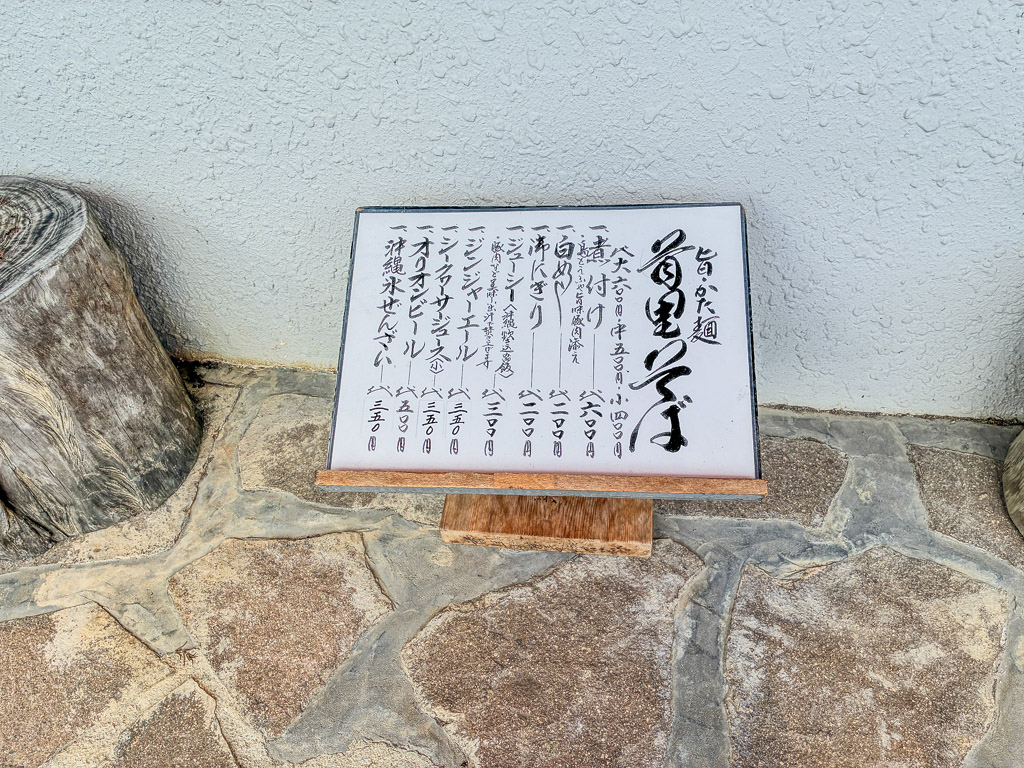 旨・かた麺
首里そば
大 六〇〇円・中 五〇〇円・小 四〇〇円
一 煮付け 六〇〇円
・島どうふや旨味豚肉添え
一 白めし 二〇〇円
一 御にぎり 二〇〇円
一 ジューシー〈沖縄炊込御飯〉 三〇〇円
・豚肉など美味
一 ジンジャーエール 三五〇円
一 シークヮーサージュース(小) 三五〇円
一 オリオンビール 五〇〇円
一 沖縄氷ぜんざい 三五〇円